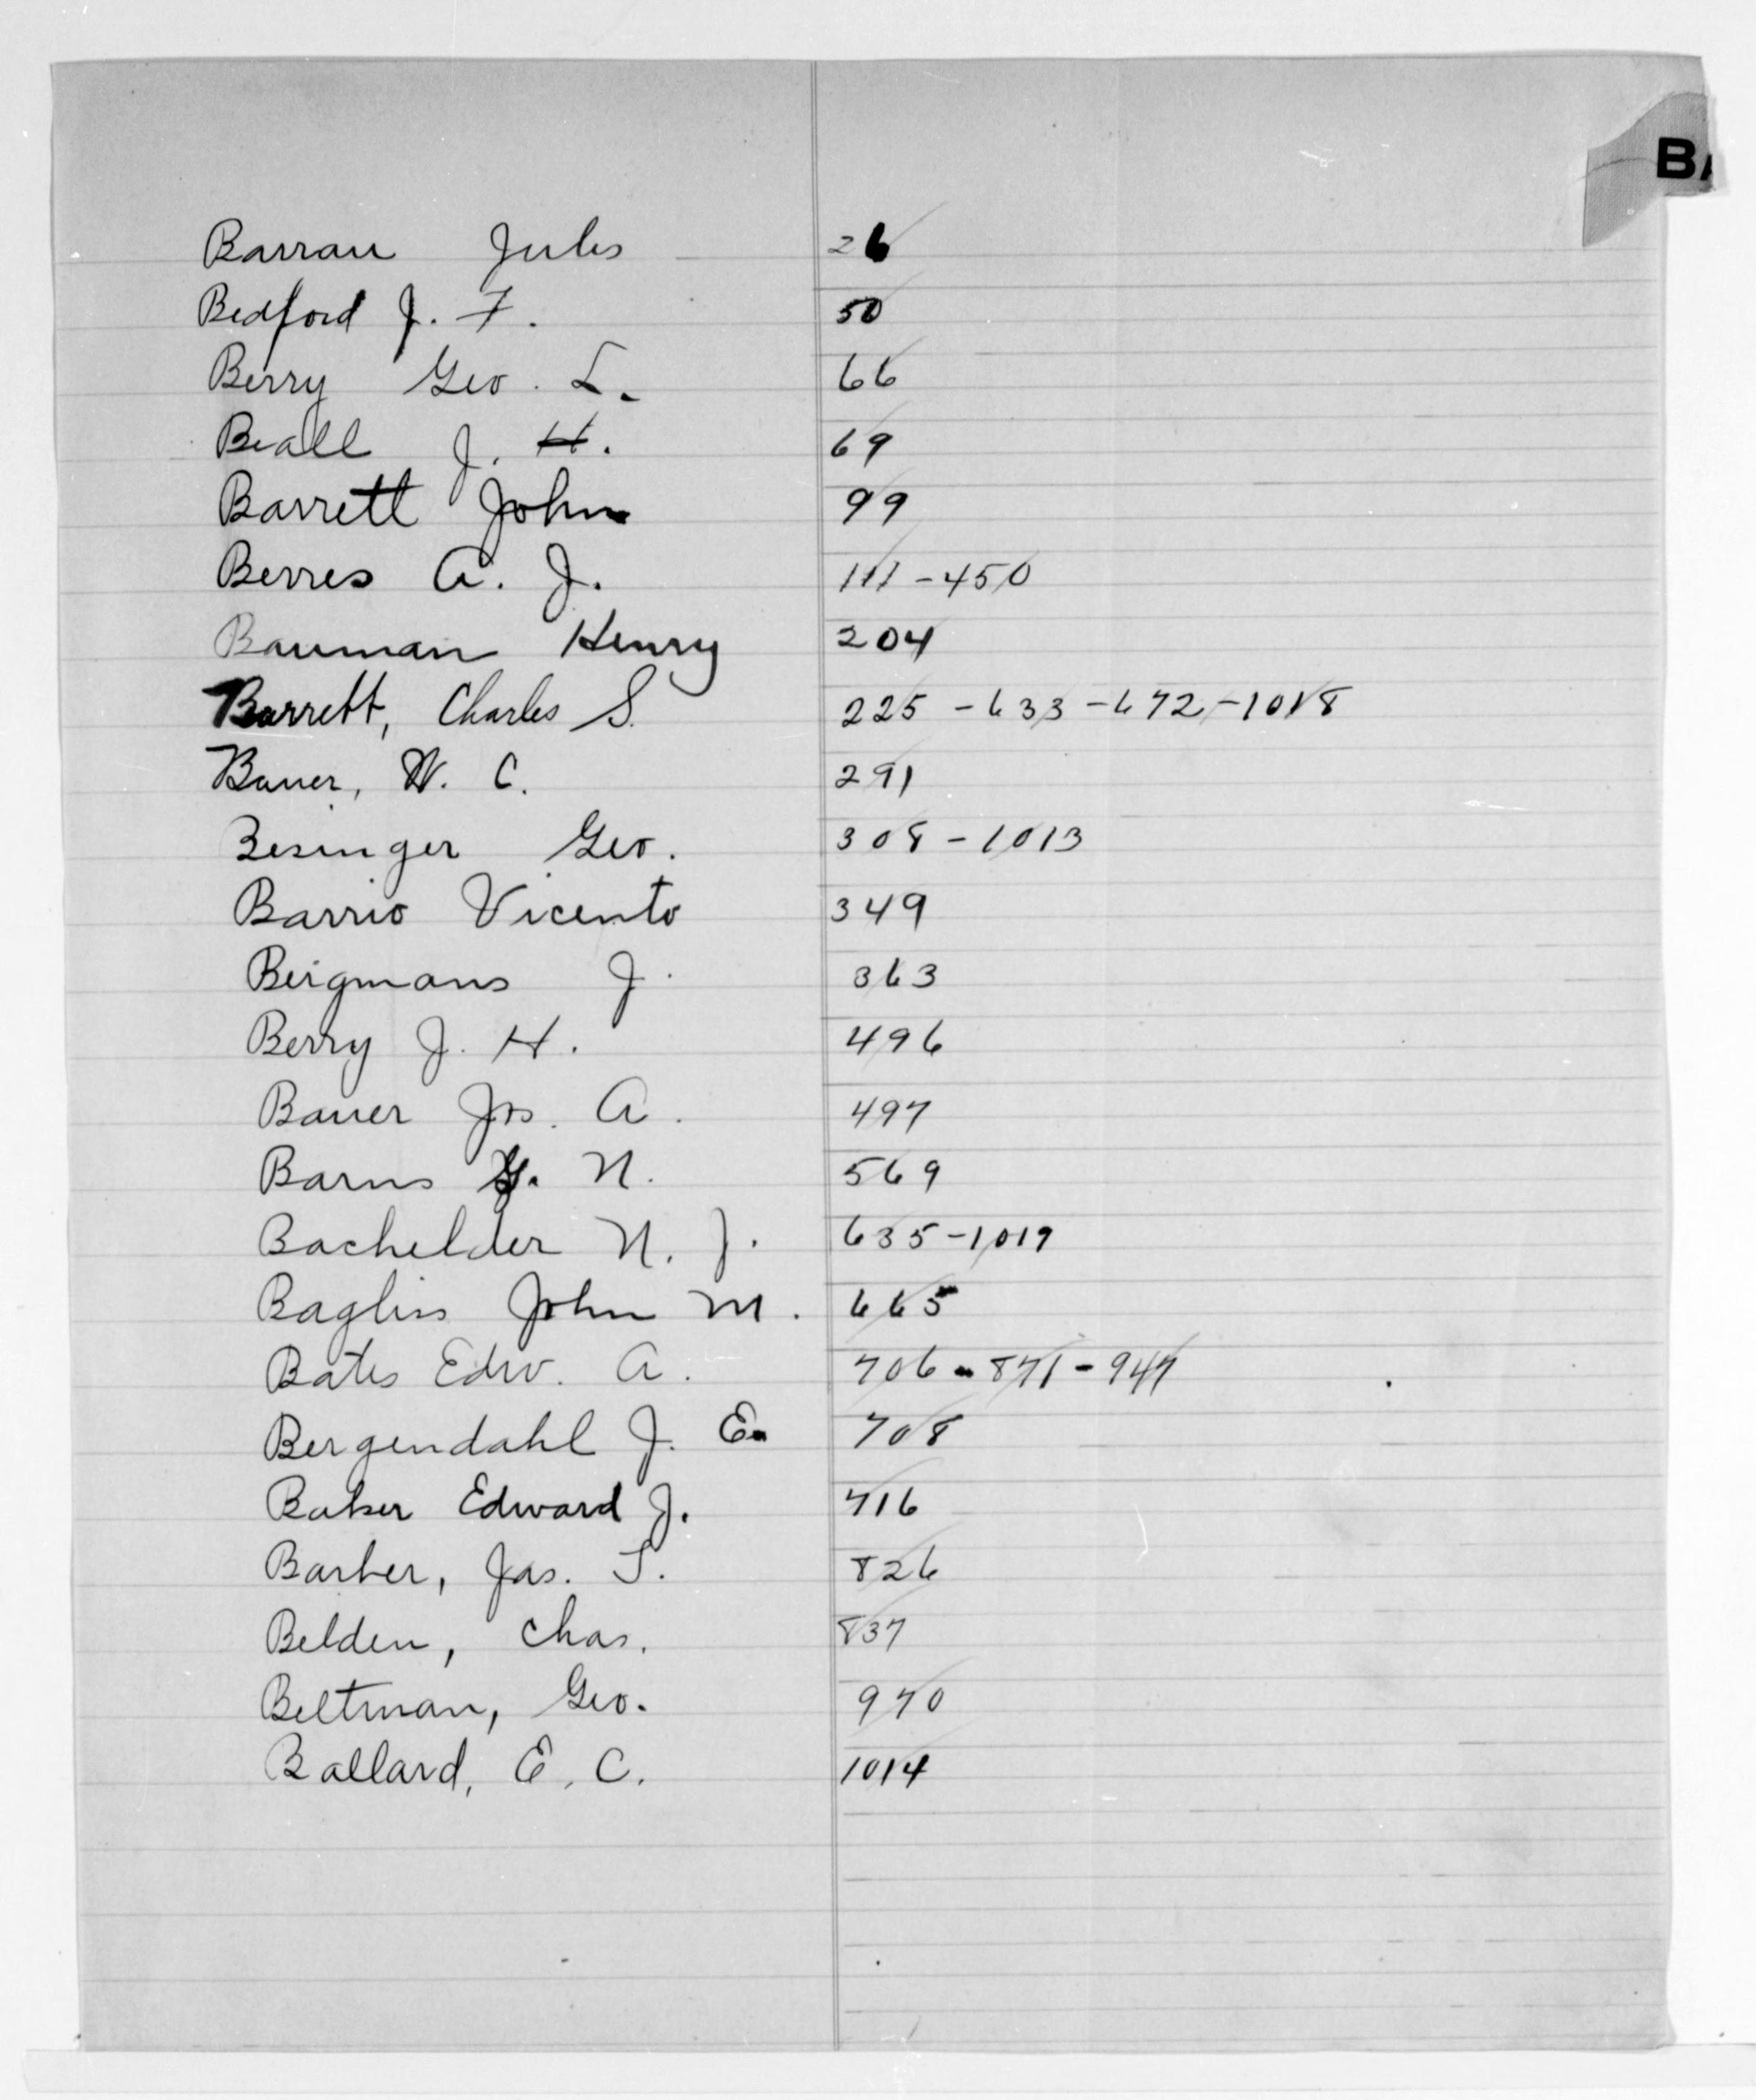 BA
Barrau Jules 26
Bedford J. F. 50
Berry Geo. L. 66
Beall J. H. 69
Barrett John 99
Berres A. J. 111-450
Bauman Henry 204
Barrett, Charles S. 225-633-672-1018
Bauer, W. C. 291
Besinger Geo. 308-1013
Barrio Vicento 349
Bergmans J. 363
Berry J. H. 496
Bauer Jos. A. 497
Barns G. N. 569
Bachelder N. J. 635-1019
Bagliss John M. 665
Bates Edw. A. 706-871-947
Bergendahl J. E. 708
Baker Edward J. 716
Barber, Jas. T. 826
Belden, Chas. 837
Beltman, Geo. 970
Ballard, E. C. 1014